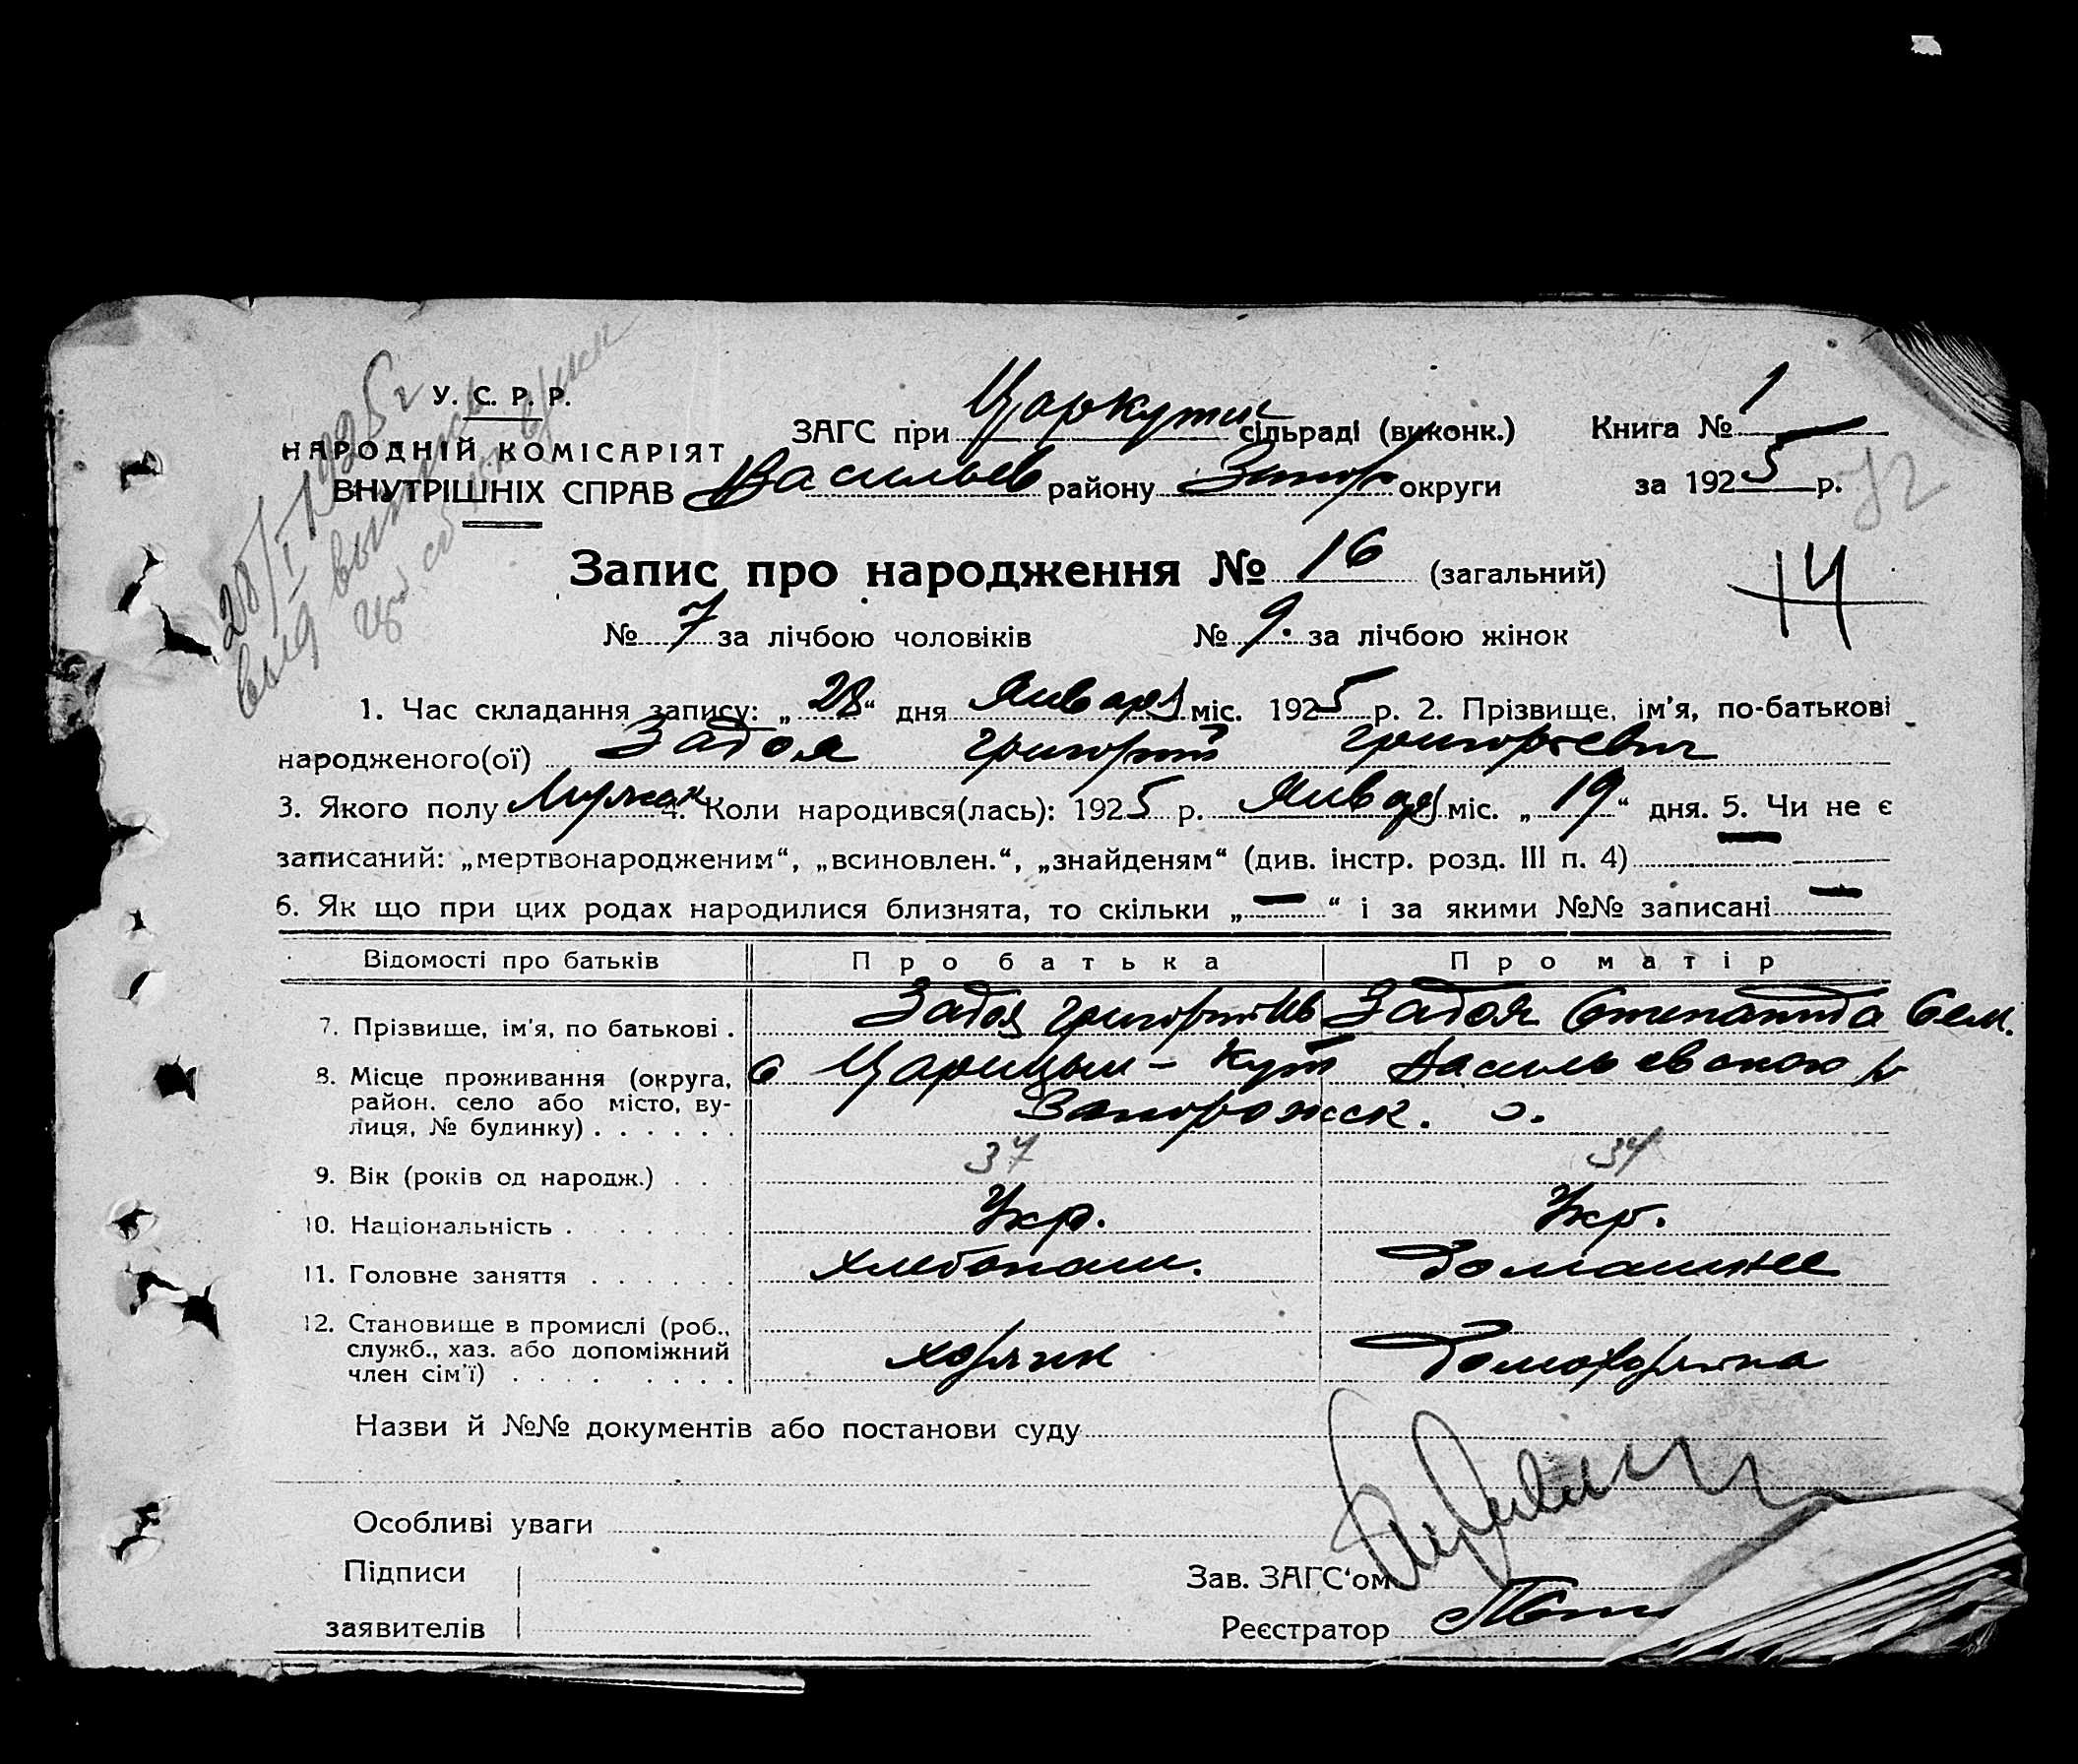 У. С. Р. Р.
НАРОДНІЙ КОМІСАРІЯТ
ВНУТРІШНІХ СПРАВ
ЗАГС при Царкутск сільраді (виконк.)
Васильев району Запор округи
Книга № 1
за 1925 р.
28/I 1925 г
выд выпись
32
14
Запис про народження № 16 (загальний)
№ 7 за лічбою чоловіків № 9. за лічбою жінок
1. Час складання запису: „28“ дня Января міс. 1925 р. 2. Прізвище, ім'я, по-батькові
народженого(ої) Задоя Григорій Григорьевич
3. Якого полу Мужск 4. Коли народився(лась): 1925 р. Января міс. „19“ дня. 5. Чи не є
записаний: „мертвонародженим“, „всиновлен.“, „знайденям“ (див. інстр. розд. III п. 4) —
6. Як що при цих родах народилися близнята, то скільки „—“ і за якими №№ записані —
Відомості про батьків Про батька Про матір
7. Прізвище, ім'я, по батькові . Задоя Григорий Ив Задоя Степанида Сем.
8. Місце проживання (округа, район, село або місто, вулиця, № будинку) . . . . . .
с Царицын-Кут Васильевского р
Запорожск. о.
9. Вік (років од народж.) . . . 37 34
10. Національність . . . . . . Укр. Укр.
11. Головне заняття . . . . . . хлебопаш. Домашнее
12. Становище в промислі (роб.,
служб., хаз. або допоміжний
член сім'ї) . . . . . . . . . хозяин Домохозяйка
Назви й №№ документів або постанови суду
Особливі уваги
Підписи
заявителів
Зав. ЗАГС'ом
Реєстратор